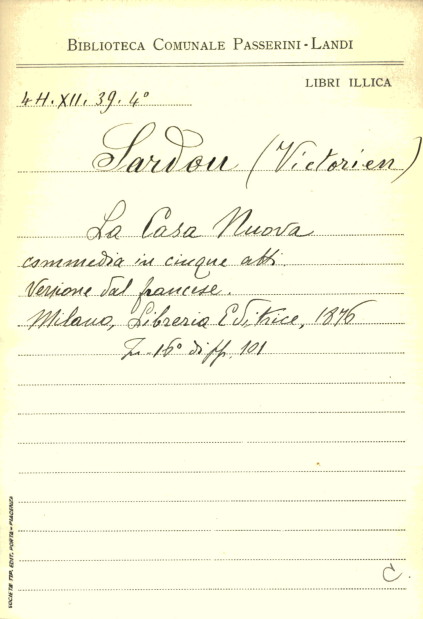 BIBLIOTECA COMUNALE PASSERINI-LANDI
LIBRI ILLICA
4H. XII. 39. 4°
Sardou (Victorien)
La Casa Nuova
commedia in cinque atti.
Versione dal francese.
Milano, Libreria Editrice, 1876
In-16° di pp. 101
SOCIETÀ TIP. EDIT. PORTA - PIACENZA
C.